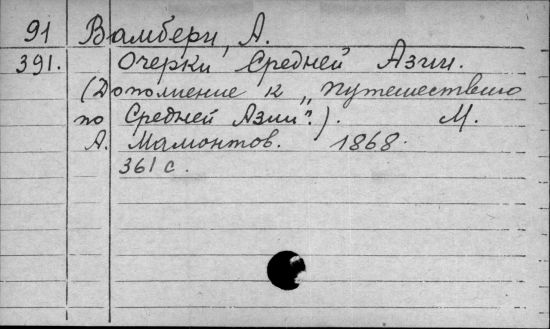 91 Вамбери, А.
391. Очерки Средней Азии.
(Дополнение к „Путешествию
по Средней Азии".). М.
А. Мамонтов. 1868.
361 с.